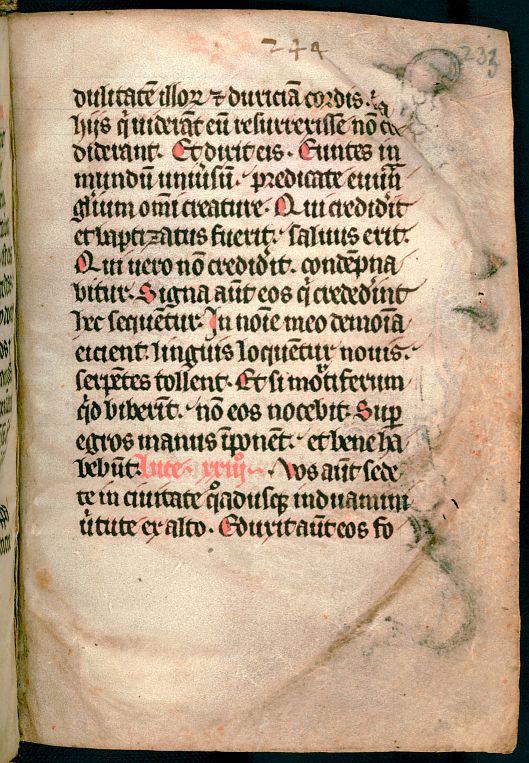 274
233
dulitatē illoꝝ ⁊ duriciā cordis. qa
hijs q̇ uiderāt eū resurrexisse nō cre
diderant. Et dixit eis. Euntes in
mundū uniũsũ. predicate euuā
gl̄ium omī creature. Qui credid̾it
et baptizatus fuerit. saluus erit.
Qui uero nō credid̾it. condēpna
bitur. Signa aūt eos q̇ credid̾int
hec sequētur. In noīe meo demoīa
eicient. linguis loquētur nouis.
serpētes tollent. Et si mortiferum
qͥd biberīt. nō eos nocebit. Sup̄
egros manus īponēt. et bene ha
bebūt. luce xxiiij Vos aūt sede
te in ciuitate qͦadusqꝫ induamini
ũtute ex alto. Eduxit aūt eos fo